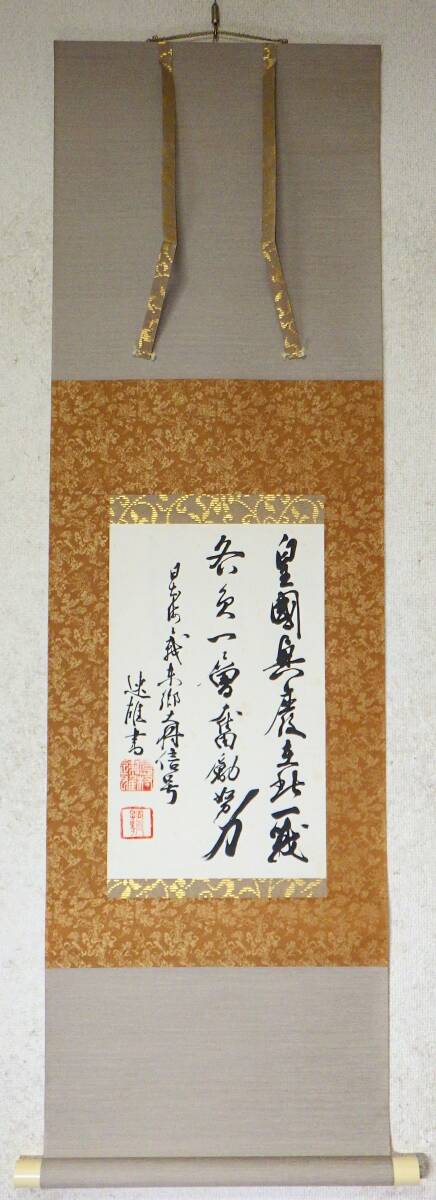 皇國興廢在此一戰
各員一層奮勵努力
日本海々戰東郷大将信号
達雄書